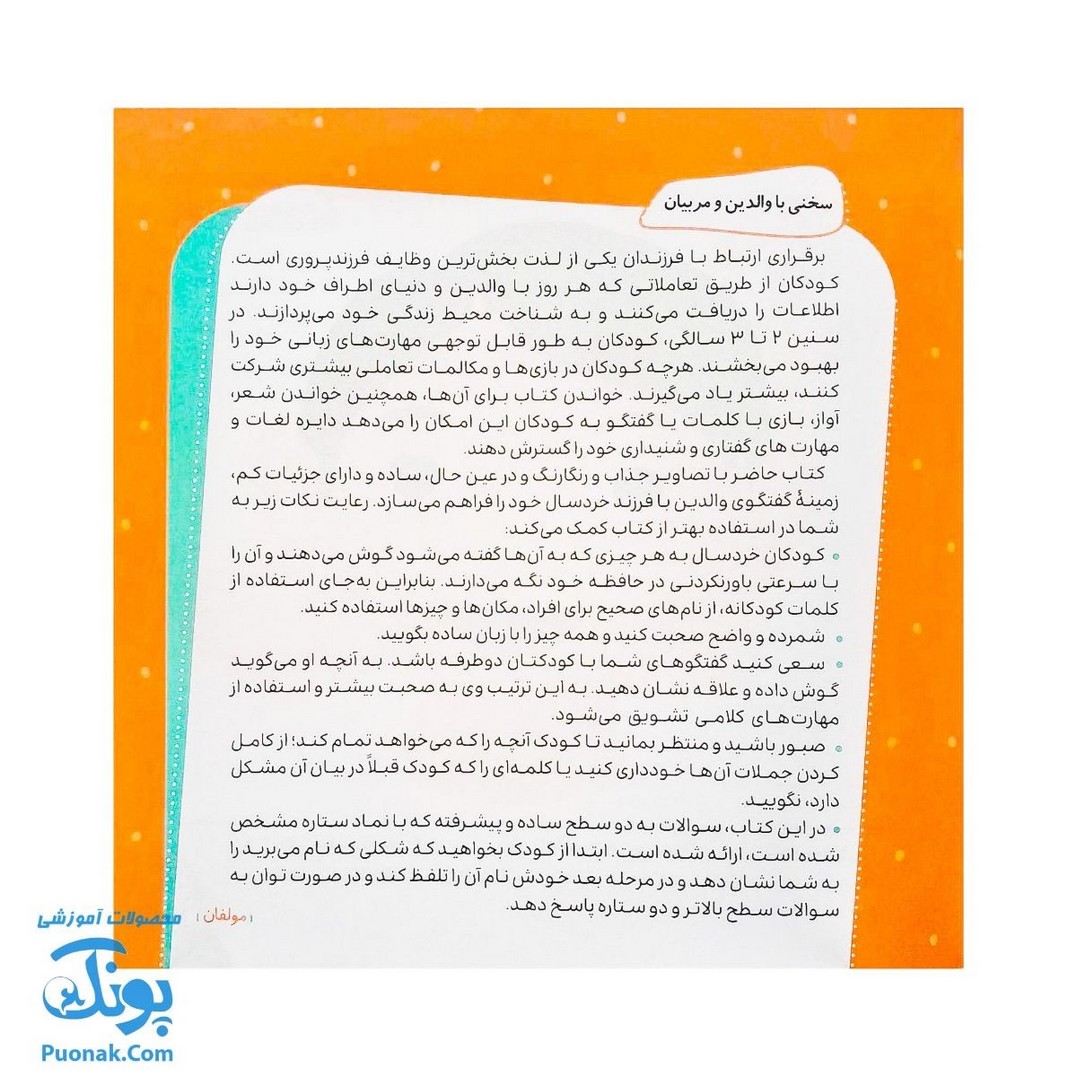 سخنی با والدین و مربیان
برقراری ارتباط با فرزندان یکی از لذت بخش‌ترین وظایف فرزندپروری است.
کودکان از طریق تعاملاتی که هر روز با والدین و دنیای اطراف خود دارند
اطلاعات را دریافت می‌کنند و به شناخت محیط زندگی خود می‌پردازند. در
سنین ۲ تا ۳ سالگی، کودکان به طور قابل توجهی مهارت‌های زبانی خود را
بهبود می‌بخشند. هرچه کودکان در بازی‌ها و مکالمات تعاملی بیشتری شرکت
کنند، بیشتر یاد می‌گیرند. خواندن کتاب برای آن‌ها، همچنین خواندن شعر،
آواز، بازی با کلمات یا گفتگو به کودکان این امکان را می‌دهد دایره لغات و
مهارت های گفتاری و شنیداری خود را گسترش دهند.
کتاب حاضر با تصاویر جذاب و رنگارنگ و در عین حال، ساده و دارای جزئیات کم،
زمینهٔ گفتگوی والدین با فرزند خردسال خود را فراهم می‌سازد. رعایت نکات زیر به
شما در استفاده بهتر از کتاب کمک می‌کند:
• کودکان خردسال به هر چیزی که به آن‌ها گفته می‌شود گوش می‌دهند و آن را
با سرعتی باورنکردنی در حافظه خود نگه می‌دارند. بنابراین به‌جای استفاده از
کلمات کودکانه، از نام‌های صحیح برای افراد، مکان‌ها و چیزها استفاده کنید.
• شمرده و واضح صحبت کنید و همه چیز را با زبان ساده بگویید.
• سعی کنید گفتگوهای شما با کودکتان دوطرفه باشد. به آنچه او می‌گوید
گوش داده و علاقه نشان دهید. به این ترتیب وی به صحبت بیشتر و استفاده از
مهارت‌های کلامی تشویق می‌شود.
• صبور باشید و منتظر بمانید تا کودک آنچه را که می‌خواهد تمام کند؛ از کامل
کردن جملات آن‌ها خودداری کنید یا کلمه‌ای را که کودک قبلاً در بیان آن مشکل
دارد، نگویید.
• در این کتاب، سوالات به دو سطح ساده و پیشرفته که با نماد ستاره مشخص
شده است، ارائه شده است. ابتدا از کودک بخواهید که شکلی که نام می‌برید را
به شما نشان دهد و در مرحله بعد خودش نام آن را تلفظ کند و در صورت توان به
سوالات سطح بالاتر و دو ستاره پاسخ دهد.
| مولفان |
محصولات آموزشی
پونک
Puonak.Com